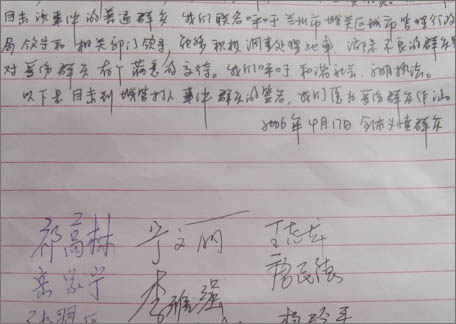 目击次事件的普通群众 我们联名呼于兰州市城关区城市管理行政
局领导和相关部门领导，能够积极调查处理此事，消除不良的群众
对受伤群众有个满意的交待。我们呼吁和谐社会，文明执法。
以下是目击到城管打人事件群众的签名，我们愿为受伤群众作证
2006年4月17日 全体义愤群众
祁高林 宁文明 王志龙
岳家宁 李雅强 唐民德